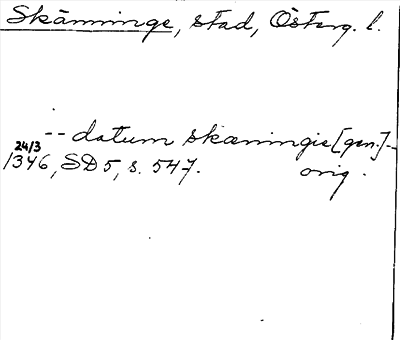 Skänninge, stad, Österg. l.
-- datum skæningie [gen.] --
24/3
1346, SD 5, s. 547. orig.